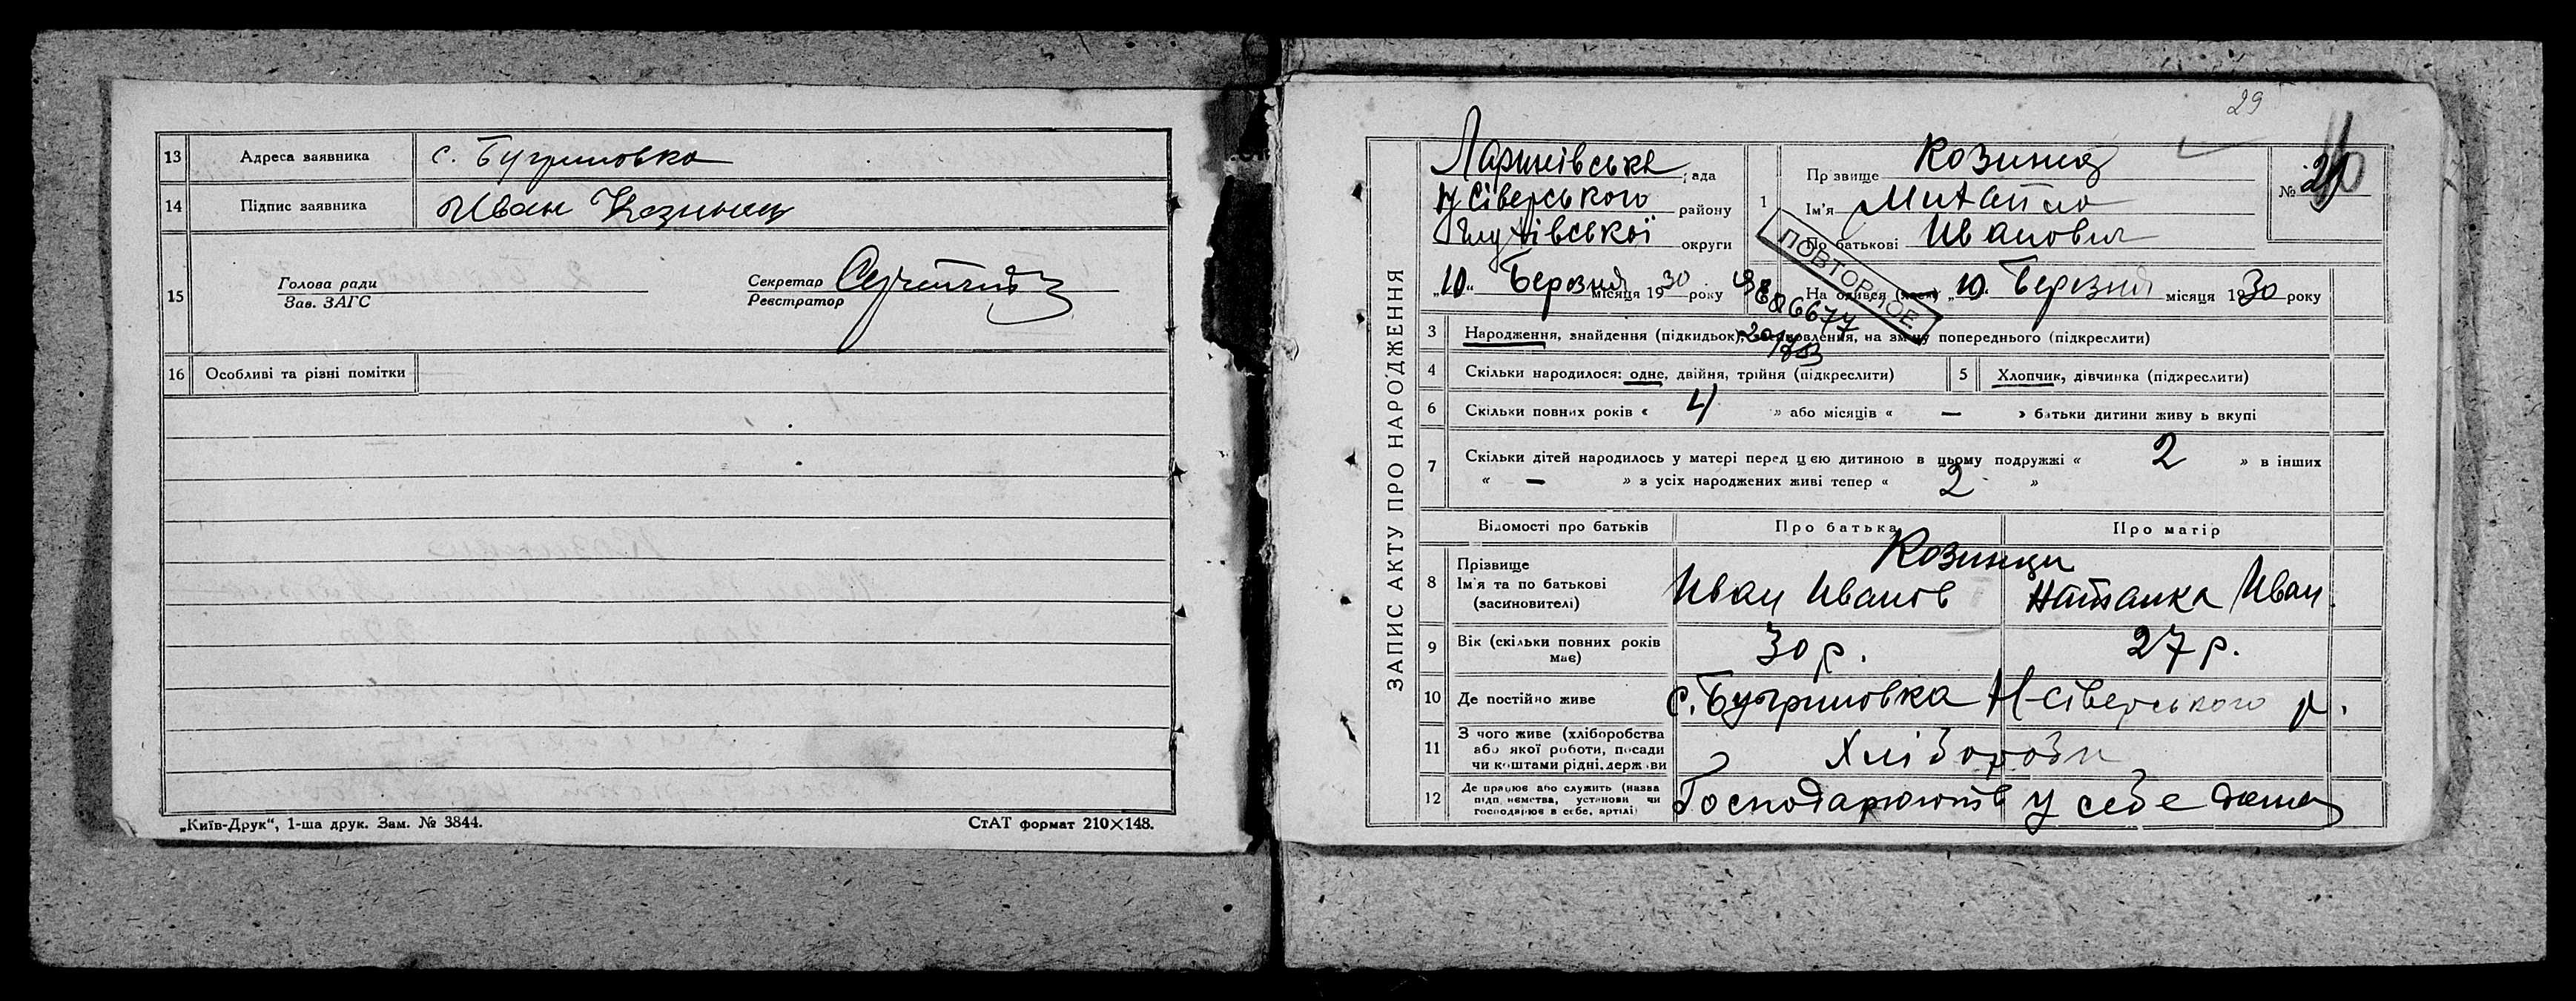 13 Адреса заявника с. Бугриновка
14 Підпис заявника Иван Козинец
15 Голова ради
Зав. ЗАГС
Секретар
Реєстратор
16 Особливі та різні помітки
„Київ-Друк“, 1-ша друк. Зам. № 3844. СтАТ формат 210×148.
29
ЗАПИС АКТУ ПРО НАРОДЖЕННЯ
Ларинівська рада
Н Сіверського району
Глухівської округи
„10“ Березня місяця 1930 року
1 Прізвище Козинец
Ім'я Михайло
По батькові Иванович
№
ПОВТОРНОЕ
Народився (лася) „10“ Березня місяця 1930 року
3 Народження, знайдення (підкидьок), встановлення, на зміну попереднього (підкреслити)
4 Скільки народилося: одне, двійня, трійня (підкреслити)
5 Хлопчик, дівчинка (підкреслити)
6 Скільки повних років « 4 » або місяців « — » батьки дитини живуть вкупі
7 Скільки дітей народилось у матері перед цією дитиною в цьому подружжі « 2 » в інших
« — » з усіх народжених живі тепер « 2 »
Відомості про батьків Про батька Про матір
8 Прізвище
Ім'я та по батькові
(засиновителі)
Козинци
Иван Иванов Наталка Иван.
9 Вік (скільки повних років має) 30 р. 27 р.
10 Де постійно живе с. Бугриновка Н-Сіверського р.
11 З чого живе (хліборобства
або якої роботи, посади
чи коштами рідні, держави
Хлібороби
12 Де працює або служить (назва
підприємства, установи чи
господарює в себе, артілі)
Господарюють у себе дома